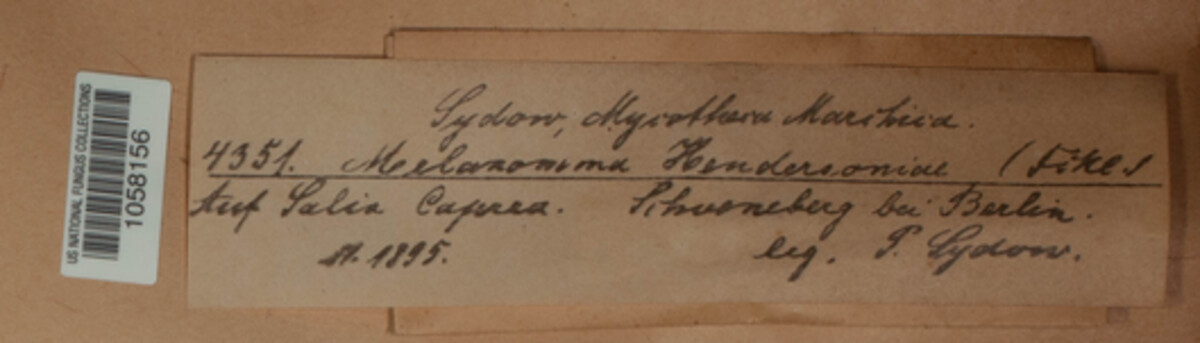 US NATIONAL FUNGUS COLLECTIONS
1058156
Sydow, Mycotheca Marchica.
4351. Melanomma Hendersoniae (Fckl.)
Auf Salix Caprea. Schoeneberg bei Berlin.
1895.
leg. P. Sydow.